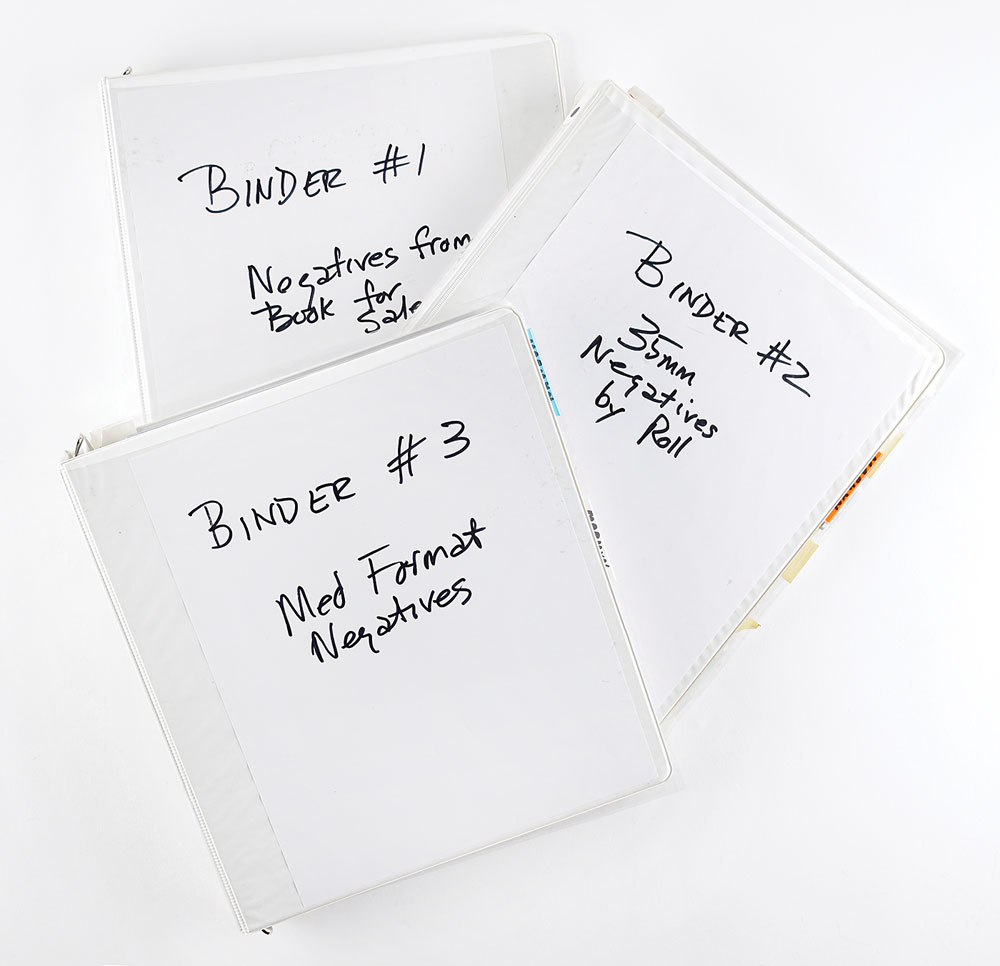 BINDER #1
Negatives from
Book for
Sale
BINDER #2
35mm
Negatives
by Roll
BINDER #3
Med Format
Negatives